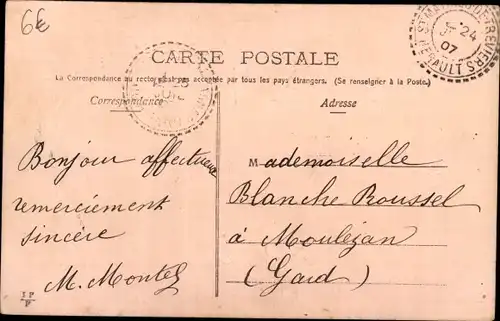 6€
CARTE POSTALE
La Correspondance au recto n'est pas acceptée par tous les pays étrangers. (Se renseigner à la Poste.)
Correspondance
Adresse
ST MATHIEU-DE-TREVIERS
24
07
HERAULT
Bonjour affectueux
remerciement
sincère
M. Montel
Mademoiselle
Blanche Roussel
à Moulézan
(Gard)
I P
P